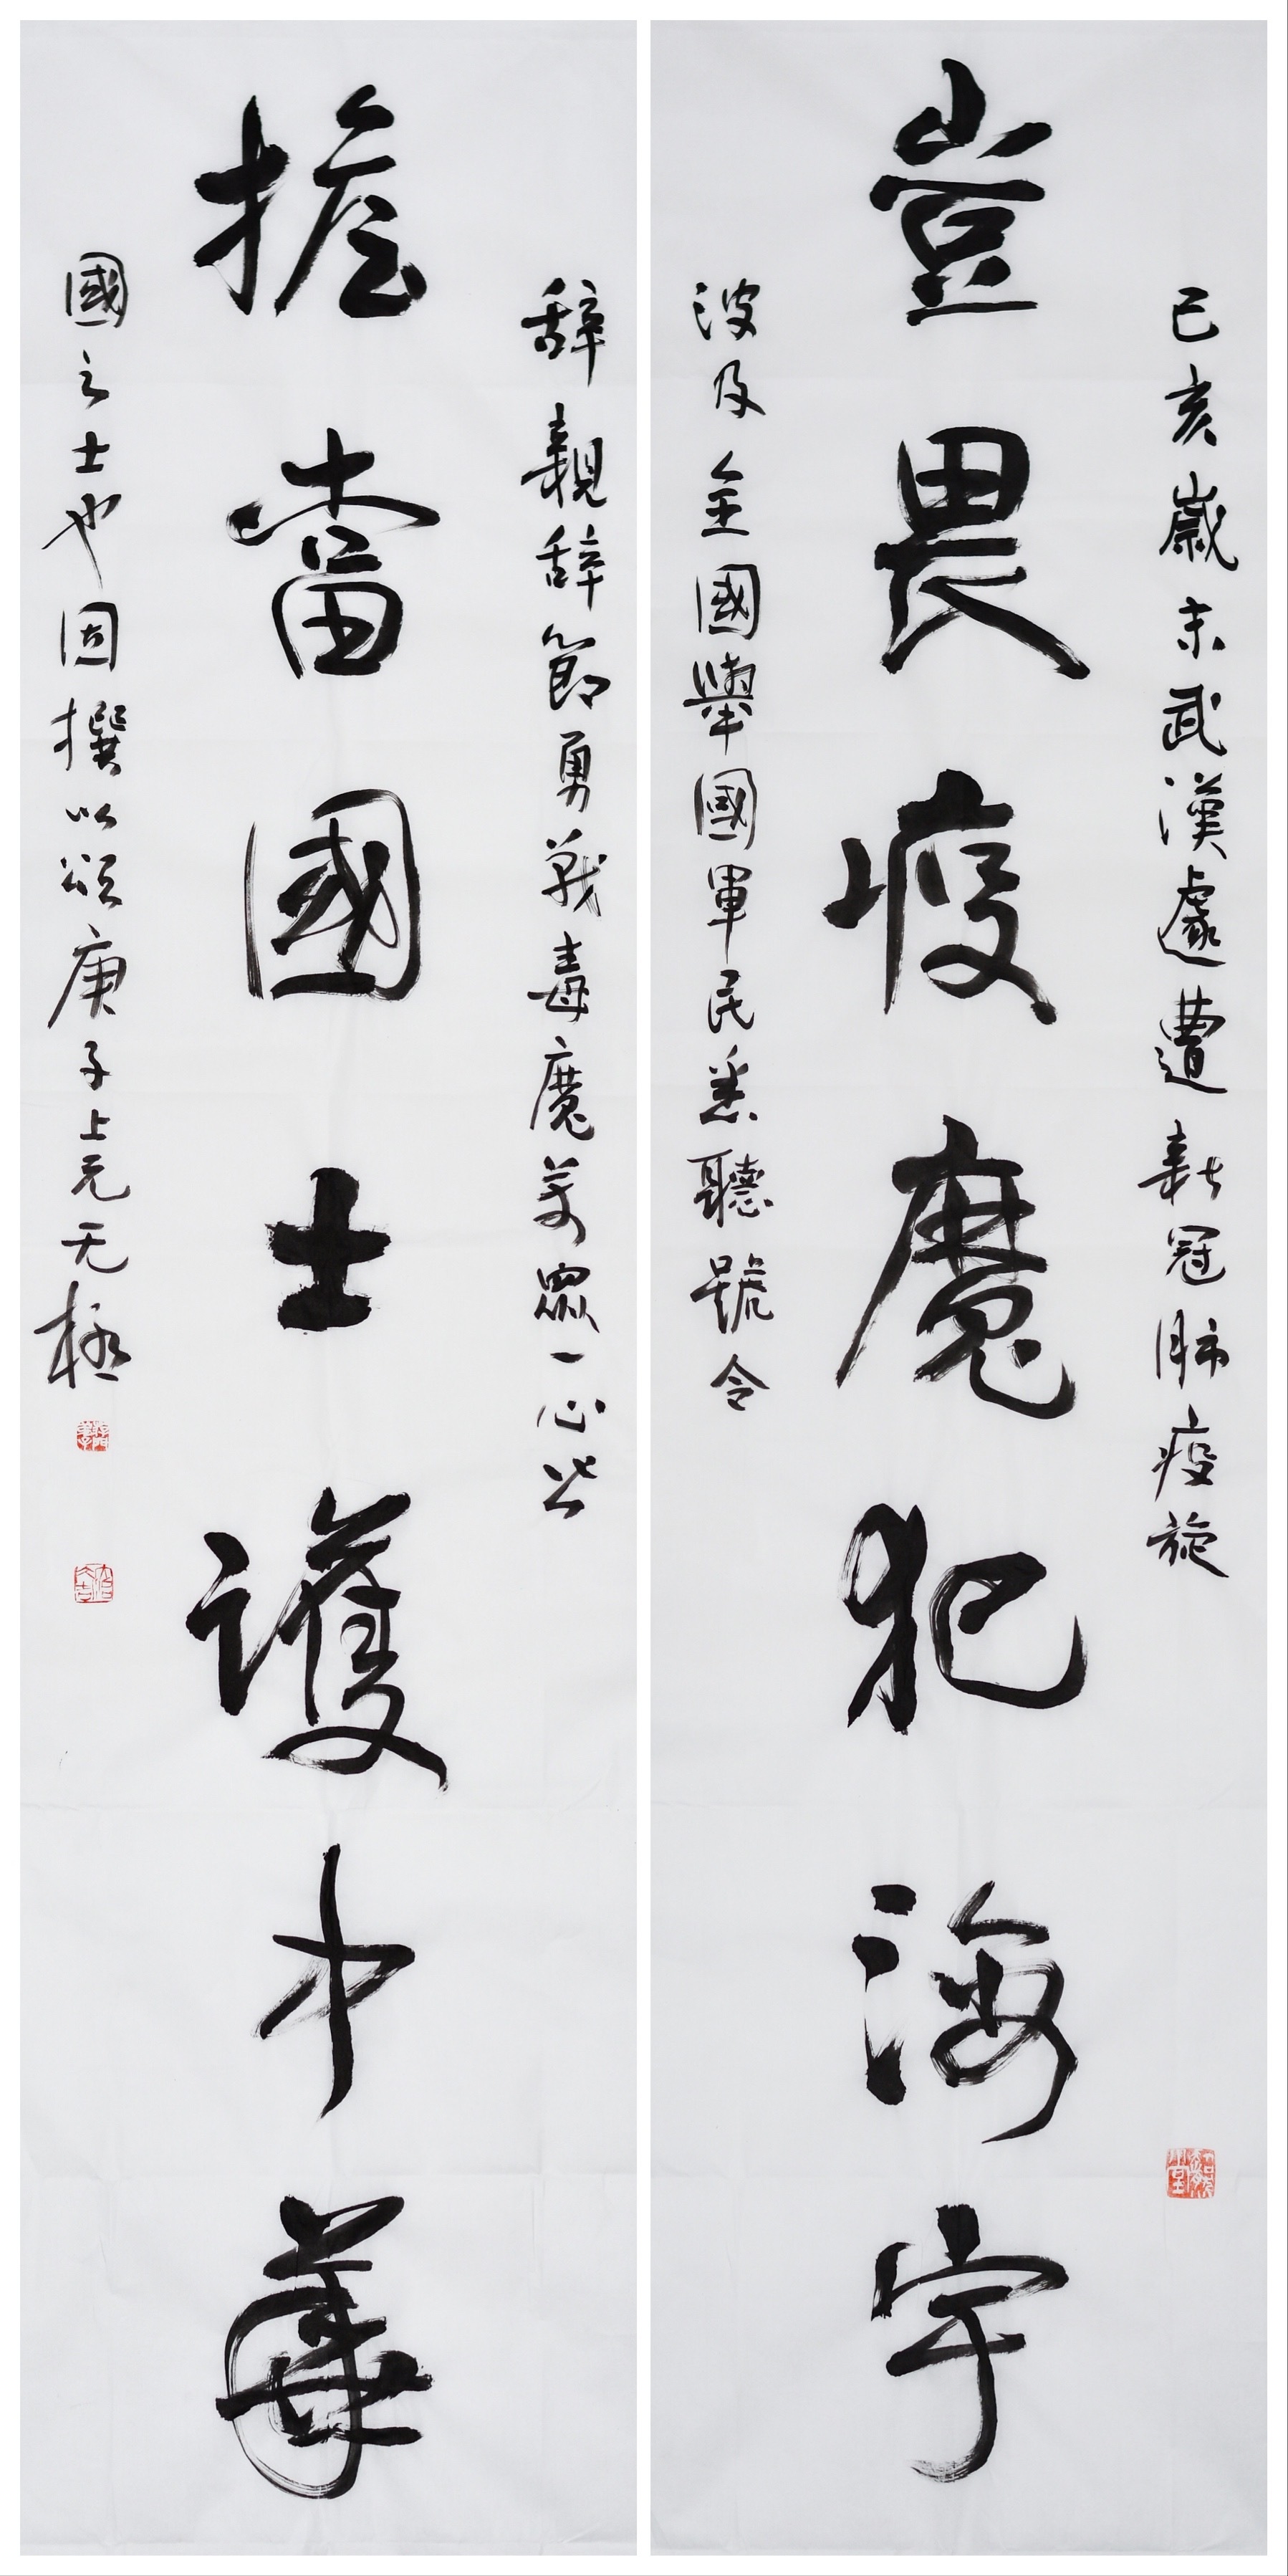 己亥歲末武漢遽遭新冠肺疫旋
豈畏疫魔犯海宇
波及全國舉國軍民悉聽號令
辭親辭節勇戰毒魔萬眾一心皆
擔當國士護中華
國之士也因撰以頌庚子上元无極